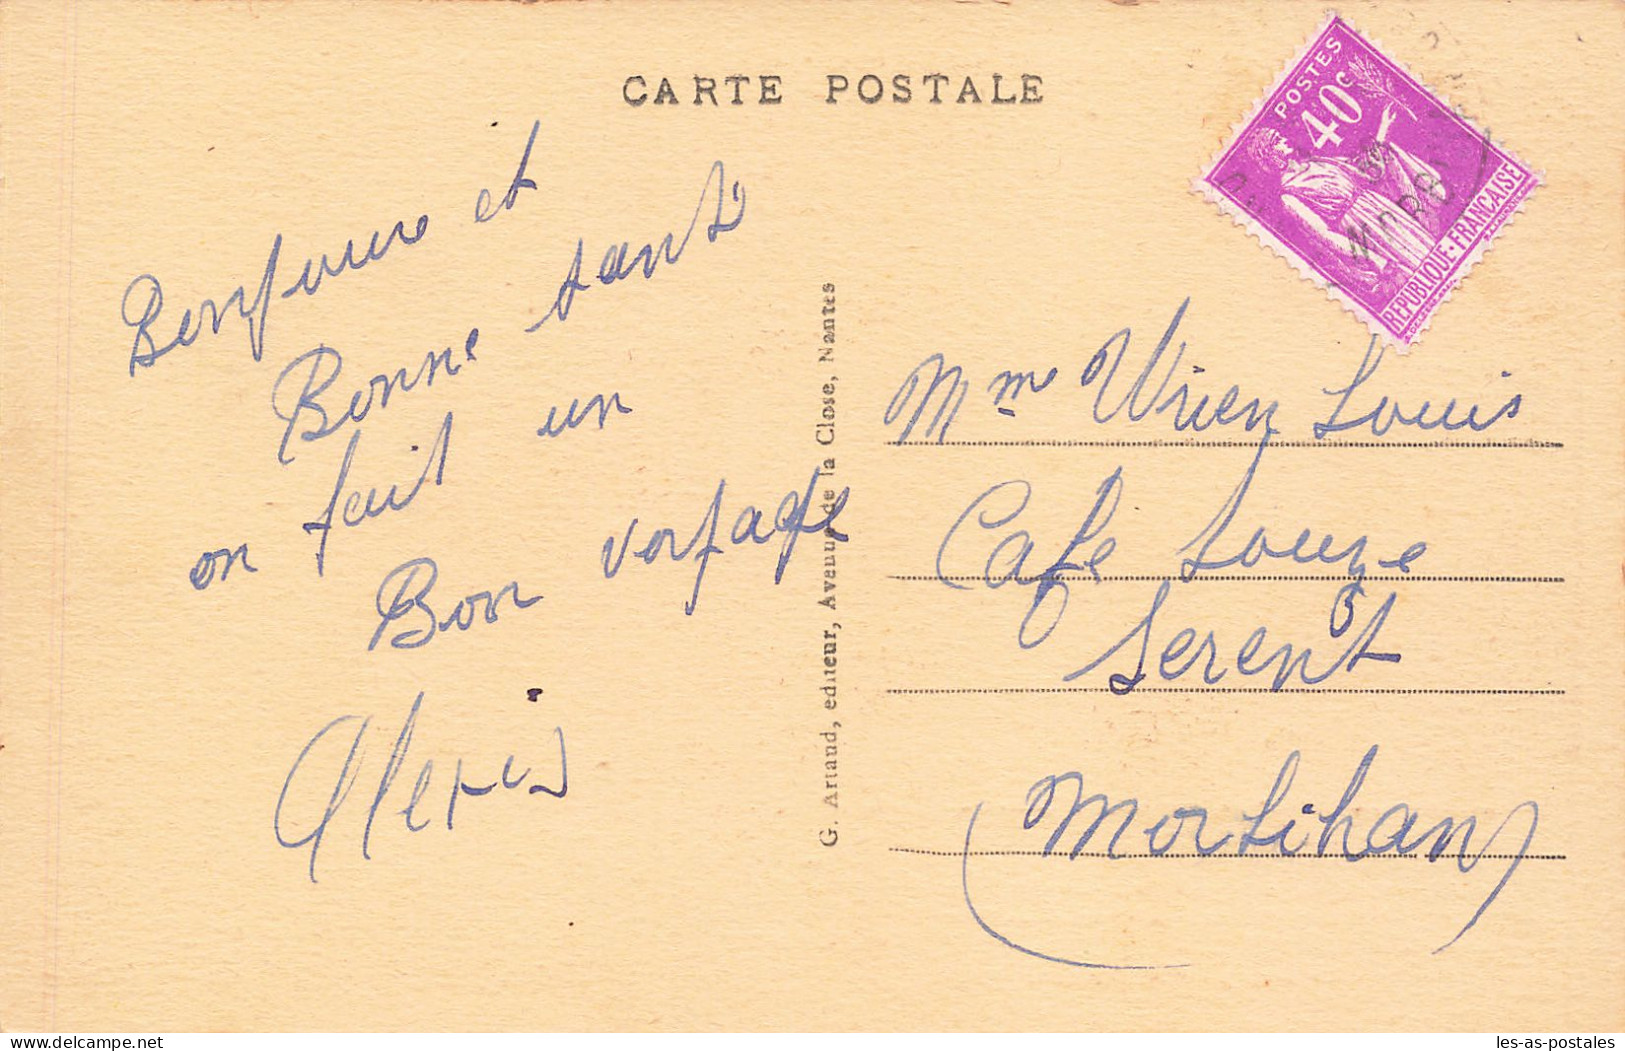 CARTE POSTALE
POSTES
40c
REPUBLIQUE · FRANÇAISE
Bonjoure et
Bonne santé
on fait un
Bon voryage
Alexis
G. Artaud, editeur, Avenue de la Close, Nantes
Mme Louis
Cafe
Serent
Morbihan
www.delcampe.net
les-as-postales